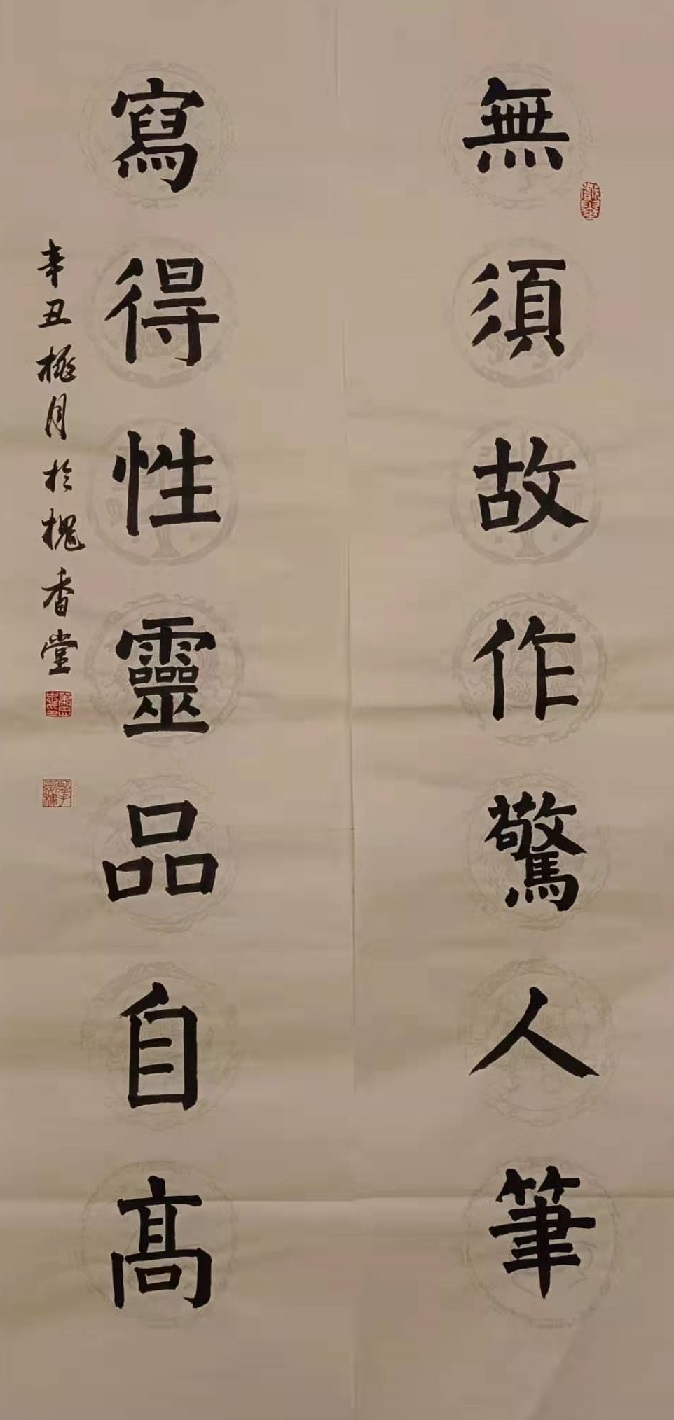 無須故作驚人筆
寫得性靈品自高
辛丑極月於槐香堂